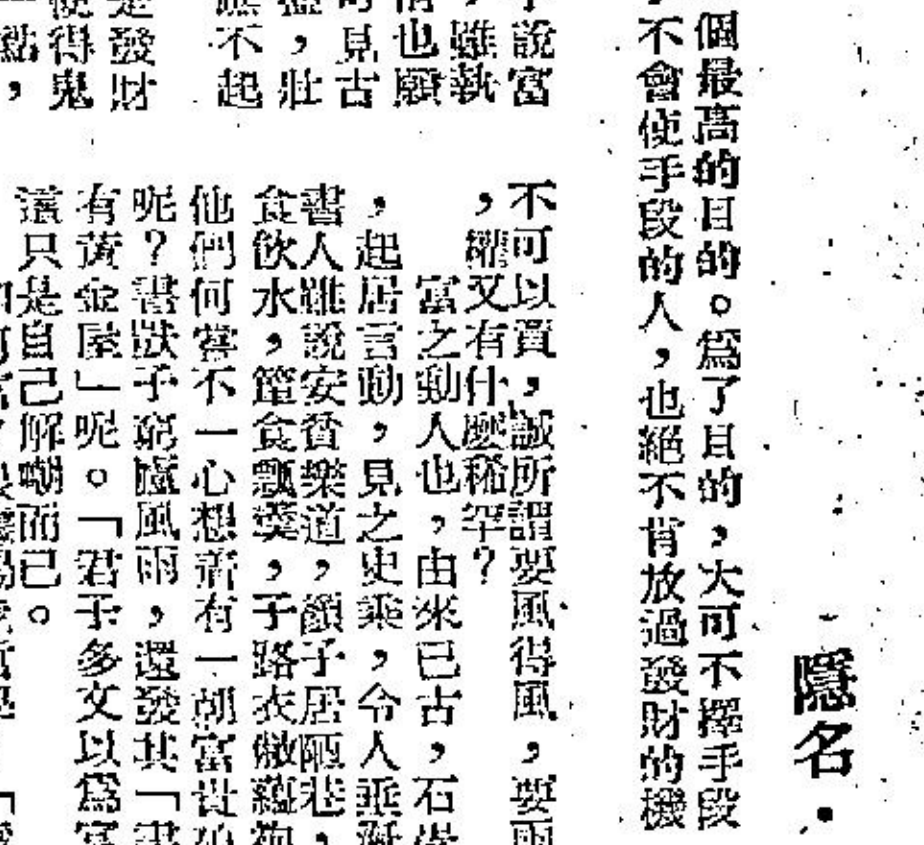 隱名·
個最高的目的。爲了目的,大可不擇手段
不會使手段的人,也絕不肯放過發財的機
說富
雖執
也願
可見古
,壯
不起
發財
使得鬼
點,
不可以買,誠所謂要風得風,要雨
,纔又有什麼稀罕?
富之動人也,由來已古,石崇
,起居言動,見之史乘,令人垂涎
書人雖說安貧樂道,顏子居陋巷,
食飲水,簞食瓢羹,子路衣敝蘊袍
他們何嘗不一心想着有一朝富貴
呢?書獃子窮廬風雨,還發其「書
有黃金屋」呢。「君子多文以爲富
這只是自己解嘲而已。